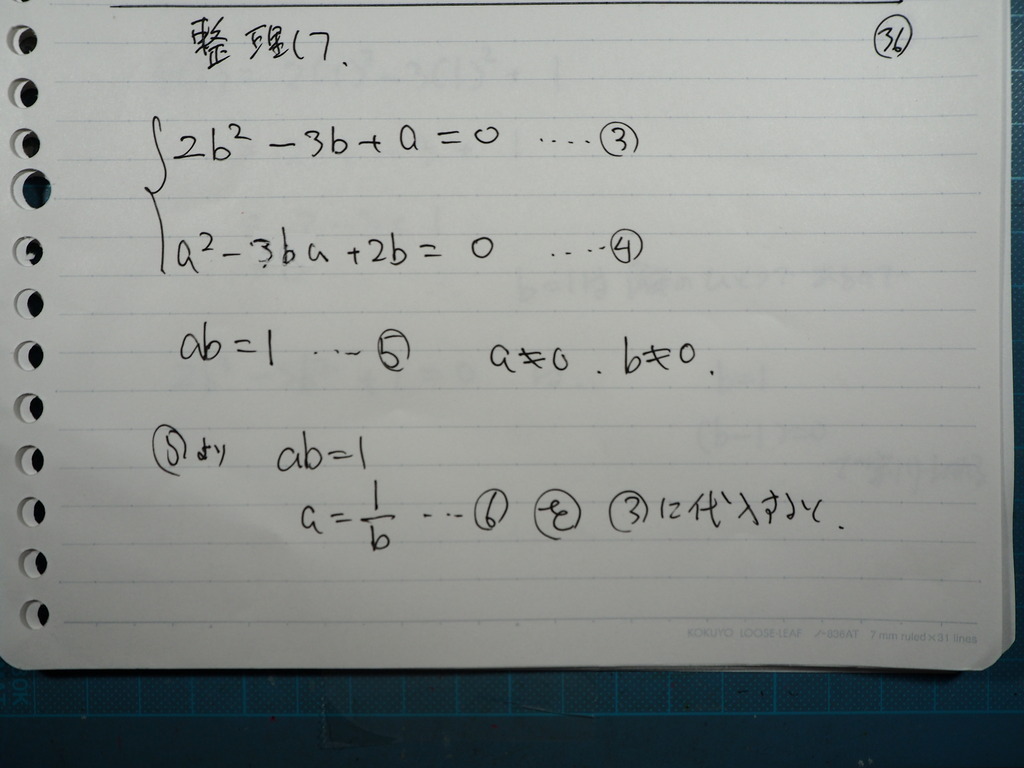 整理して、
㊱
2b² - 3b + a = 0 ····③
a² - 3ba + 2b = 0 ····④
ab = 1 ···⑤ a≠0. b≠0.
⑤より ab = 1
a = 1/b ···⑥ を ③に代入すると.
KOKUYO LOOSE-LEAF ノ-836AT 7 mm ruled×31 lines